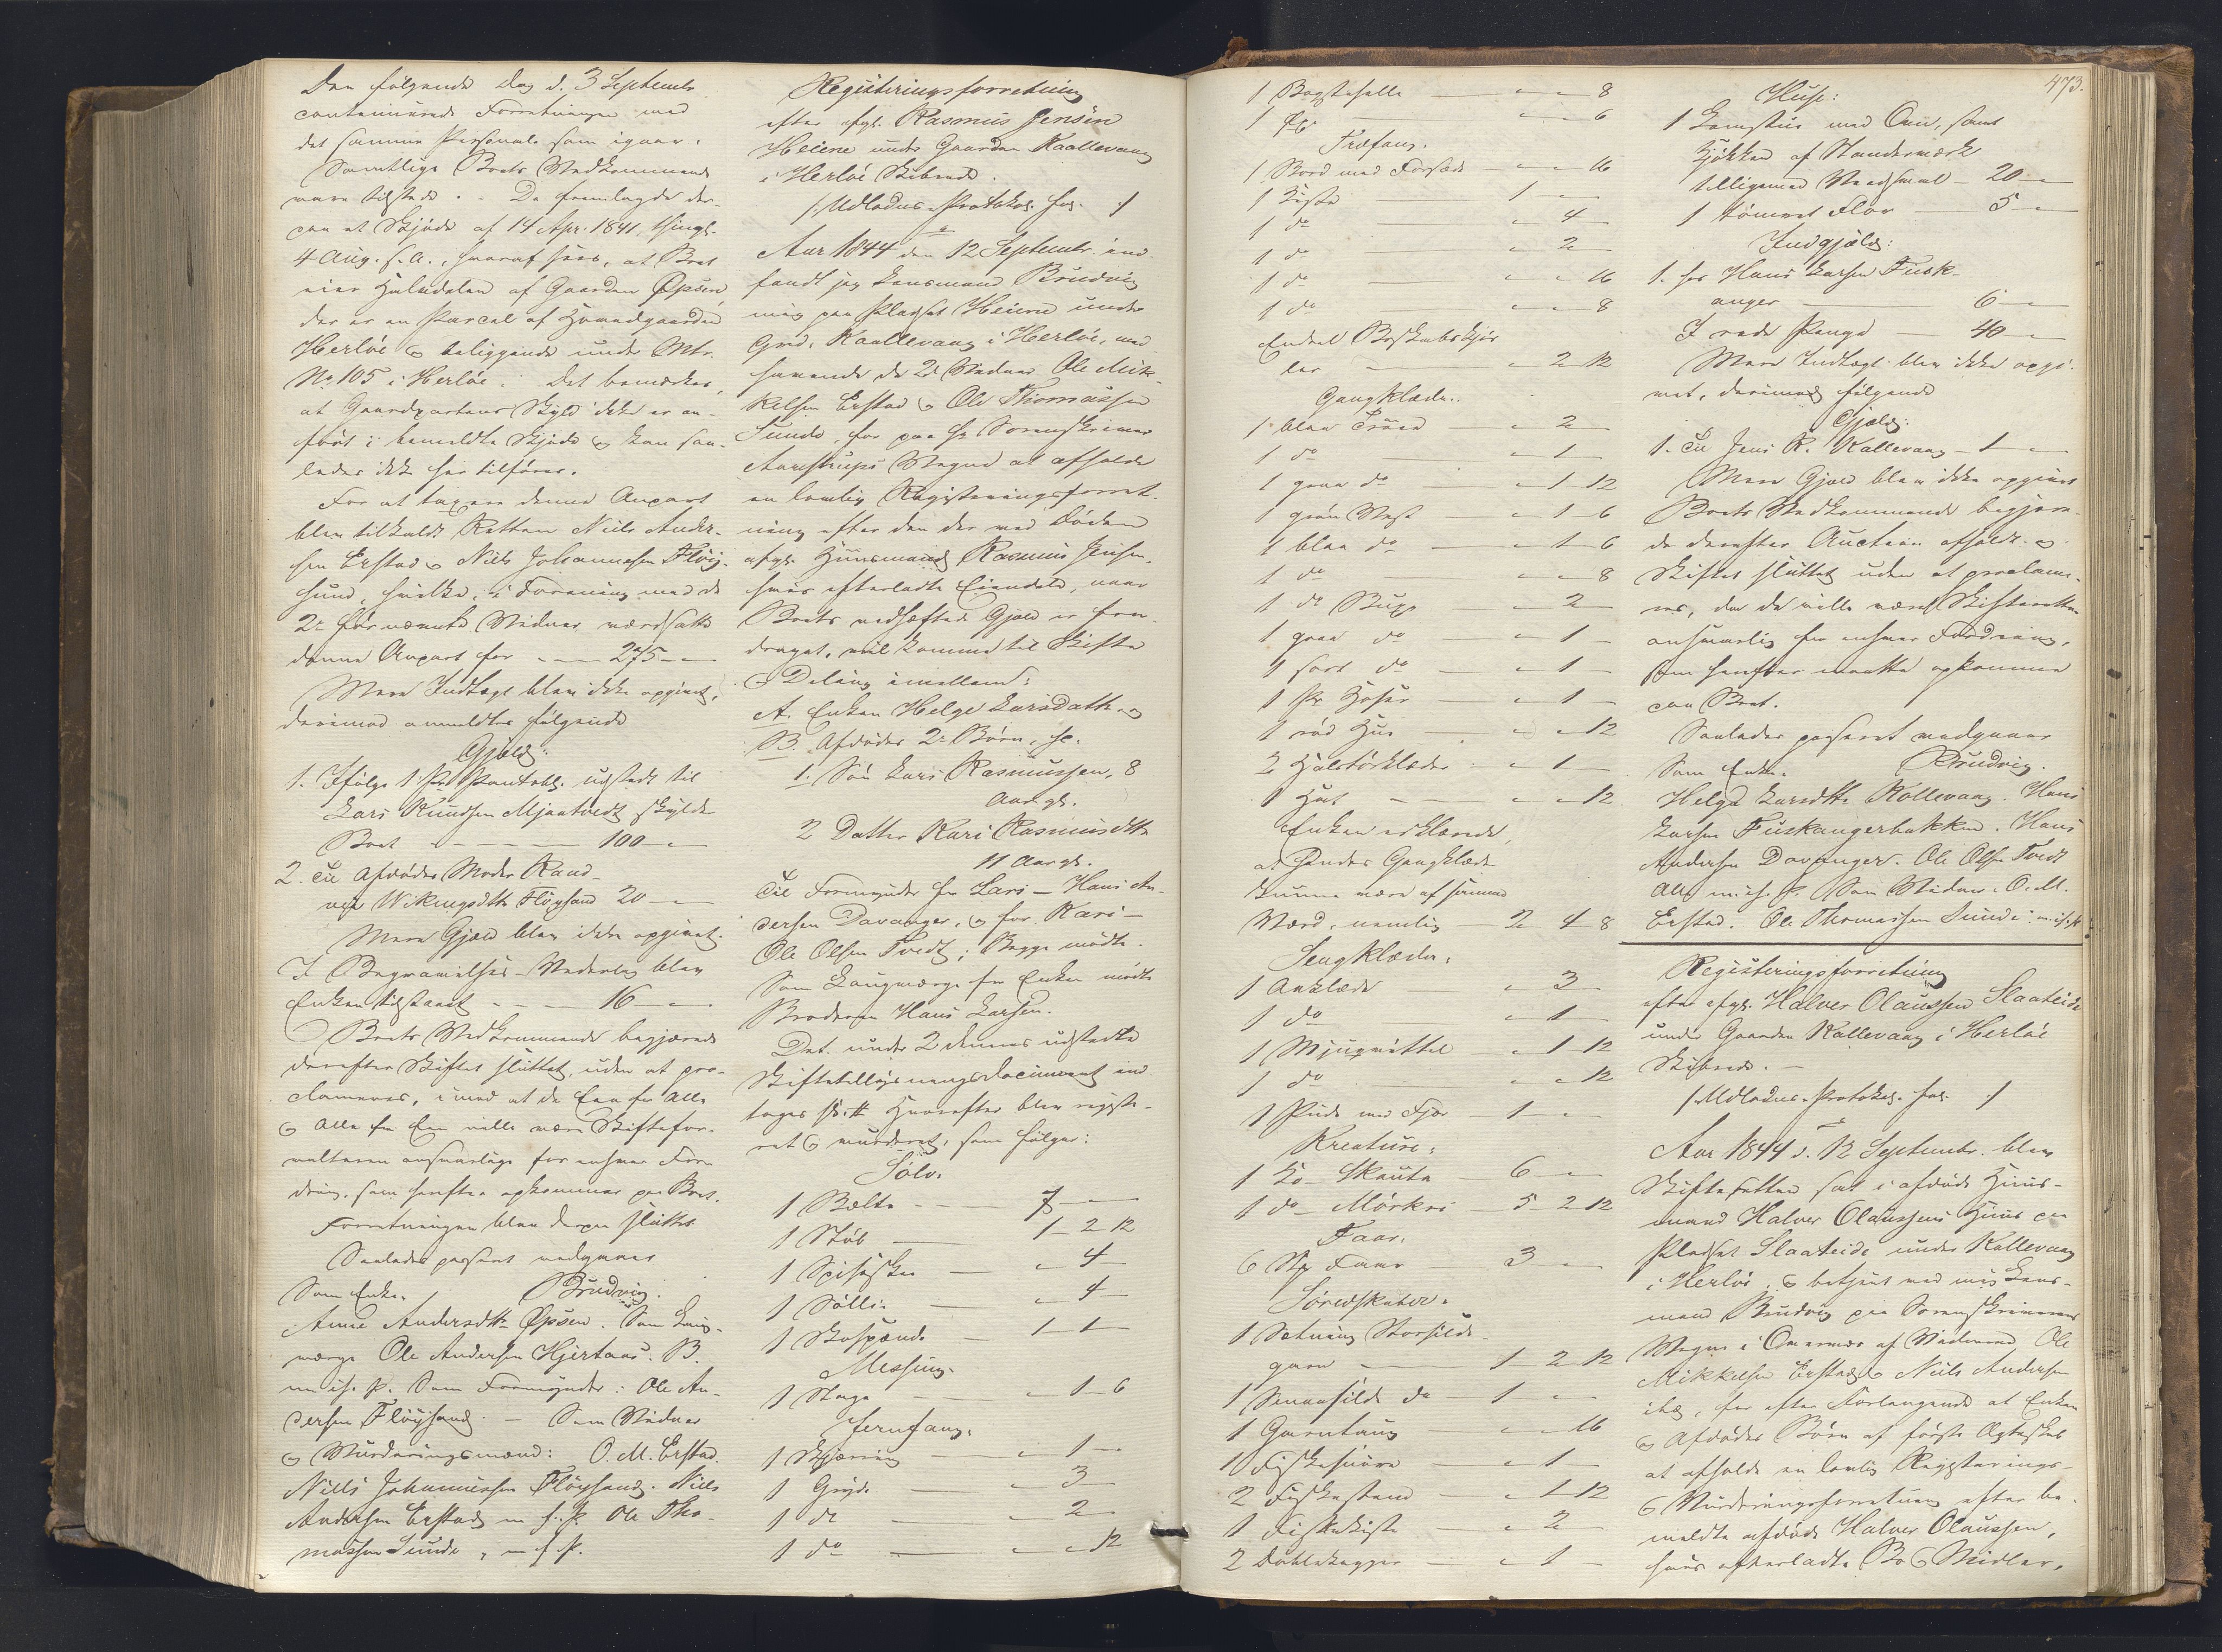 Den følgende Dag d. 3 Septembr
continuerede Forretningen med
det samme Personale som igaar.
Samtlige Boets Vedkommende
vare tilstede. De fremlagde der-
paa et Skjøde af 14 Apr. 1841, thingl.
4 Aug. s. A., hvoraf sees, at Boet
eier Halvdelen af Gaarden Øpsen,
der er en Parcel af Hovedgaarden
Herløe & beliggende under Mtr.
No 105 i Herløe. Det bemærkes,
at Gaardpartens Skyld ikke er an-
ført i bemeldte Skjøde & kan saa-
ledes ikke her tilføres.
For at taxere denne Anpart
blev tilkaldt Retten Niels Ander-
sen Erstad & Niels Johannesen Fløy-
sand, hvilke, i Forening med de
2de førnævnte Vidner værdsatte
denne Anpart for 275
Mere Indtægt blev ikke opgivet,
derimod anmeldtes følgende
Gjæld:
1. Ifølge 1ste Pr. Pantobl. udstedt til
Lars Knudsen Mjaatvedt skylder
Boet 100
2. Til Afdødes Moder Rand-
vei Wikingsdttr Fløysand 20
Mere Gjæld blev ikke opgivet.
I Begravelses-Vederlag blev
Enken tilstaaet 16
Boets Vedkommende begjærede
derefter Skiftet sluttet, uden at pro-
clameres, imod at de Een for Alle
& Alle for Een ville være Skiftefor-
valteren ansvarlige for enhver For-
dring, som herefter opkommer paa Boet.
Forretningen blev derpaa sluttet
Saaledes passeret vedgaaer
Som Enke. Brudvig.
Anne Andersdttr Øpsen. Som Laug-
værge Ole Andersen Hjertaas. B.
m. ihs. P. Som Formynder: Ole An-
dersen Fløysand. — Som Vidner
& Vurderingsmænd: O. M. Erstad.
Niels Johannesen Fløysand. Niels
Andersen Erstad m. f. P. Ole Tho-
massen Sunde, m. f. P.
Registeringsforretning
efter afgl. Rasmus Jensen
Heiene under Gaarden Kaallevaag
i Herløe Skibrede.
/: Udlodns.-Protokol. fol. :/
Aar 1844 den 12 Septembr. ind-
fandt jeg Lensmand Brudvig
mig paa Pladset Heiene under
Grd. Kaallevaag i Herløe, med-
havende de 2de Vidner Ole Mik-
kelsen Erstad & Ole Thomassen
Sunde, for paa Hr. Sorenskriver
Aarstrups Vegne at afholde
en lovlig Registeringsforret-
ning efter den der ved Døden
afgl. Huusmand Rasmus Jensen,
hvis efterladte Eiendele, naar
Boets vedhæftede Gjæld er fra-
draget, vil komme til Skifte
& Deling imellem:
A. Enken Helge Larsdattr &
B. Afdødes 2de Børn, sc.
1. Søn Lars Rasmussen, 8
Aar gl.
2 Datter Kari Rasmusdttr
11 Aar gl.
Til Formynder for Lars — Hans An-
dersen Davanger, & for Kari —
Ole Olsen Tvedt; Begge mødte.
Som Laugværge for Enken mødte
Broderen Hans Larsen.
Det under 2 dennes udstedte
Skiftetillysningsdocument ind-
tages sc: Hvorefter blev registe-
ret & vurderet, som følger:
Sølv.
1 Bælte 7
1 Støb 1 2 12
1 Spiseskee 4
1 Sølli 4
1 Skospænde 1 1
Messing.
1 Stage 1 6
Jernfang.
1 Skjæring 1
1 Gryde 3
1 do 2
1 do 12
473.
1 Bagstehelle 8
1 Øx 6
Træfang.
1 Bord med Forsæde 16
1 Kiste 1
1 do 4
1 do 2
1 do 16
1 do 8
Endeel Boskabskjør-
ler 2 12
Gangklæder.
1 blaa Trøie 2
1 do 1
1 graa do 1 12
1 grøn Vest 1 6
1 blaa do 1 6
1 do 8
1 do Buxe 2
1 graa do 1
1 sort do 1
1 Pr. Hoser 1
1 rød Hue 12
2 Halstørklæder 1
1 Hat 12
Enken erklærede,
at hendes Gangklæder
kunne være af samme
Værd, nemlig 2 4 8
Sengklæder.
1 Aaklæde 3
1 do 1
1 Mjugvittel 1 12
1 do 12
1 Pude med Fjær 1
Kreature.
1 Ko Skauta 6
1 do Mørkei 5 2 12
Faar.
6 Stk Faar 3
Søredskaber.
1 Sætning Storsilde-
garn 1 2 12
1 Smaasilde do 1
1 Garntaug 16
1 Fiskesnøre 1
2 Fiskestand 1 12
1 Fiskekiste 2
2 Dublekagger 1
Huse:
1 Lemstue med Ovn, samt
Kjøkken af Standerværk
tilligemed Vaaghuus 20
1 tømret Flor 5
Indgjæld:
1. hos Hans Larsen Fusk-
anger 6
I rede Penge 40
Mere Indtægt blev ikke opgi-
vet, derimod følgende
Gjæld:
1. Til Jens R. Kallevaag 1
Mere Gjæld blev ikke opgivet
Boets Vedkommende begjære-
de derefter Auction afholdt &
Skiftet sluttet uden at proclame-
res, da de ville være Skifteretten
ansvarlig for enhver Fordring,
som herefter maatte opkomme
paa Boet.
Saaledes passeret vedgaaer
Som Enke. Brudvig.
Helge Larsdttr Kallevaag. Hans
Larsen Fuskangerbakken. Hans
Andersen Davanger. Ole Olsen Tvedt
Alle m. ihs. P. Som Vidner: O. M.
Erstad. Ole Thomassen Sunde: m. ihs. P.
Registeringsforretning
efter afgl. Halver Olaussen Slaateide
under Gaarden Kallevaag i Herløe
Skibrede. —
/: Udlodns.-Protokol. fol. :/
Aar 1844 d. 12 Septembr. blev
Skifteretten sat i afdøde Huus-
mand Halver Olaussens Huus paa
Pladset Slaateide under Kallevaag
i Herløe, & betjent ved mig Lens-
mand Brudvig paa Sorenskriverens
Vegne i Overvær af Vidnerne Ole
Mikkelsen Erstad & Niels Andersen
ibd., for efter Forlangende af Enken
& Afdødes Børn af første Ægteskab
at afholde en lovlig Registerings-
& Vurderingsforretning efter be-
meldte afdøde Halver Olaussen,
hvis efterladte Bo & Midler,